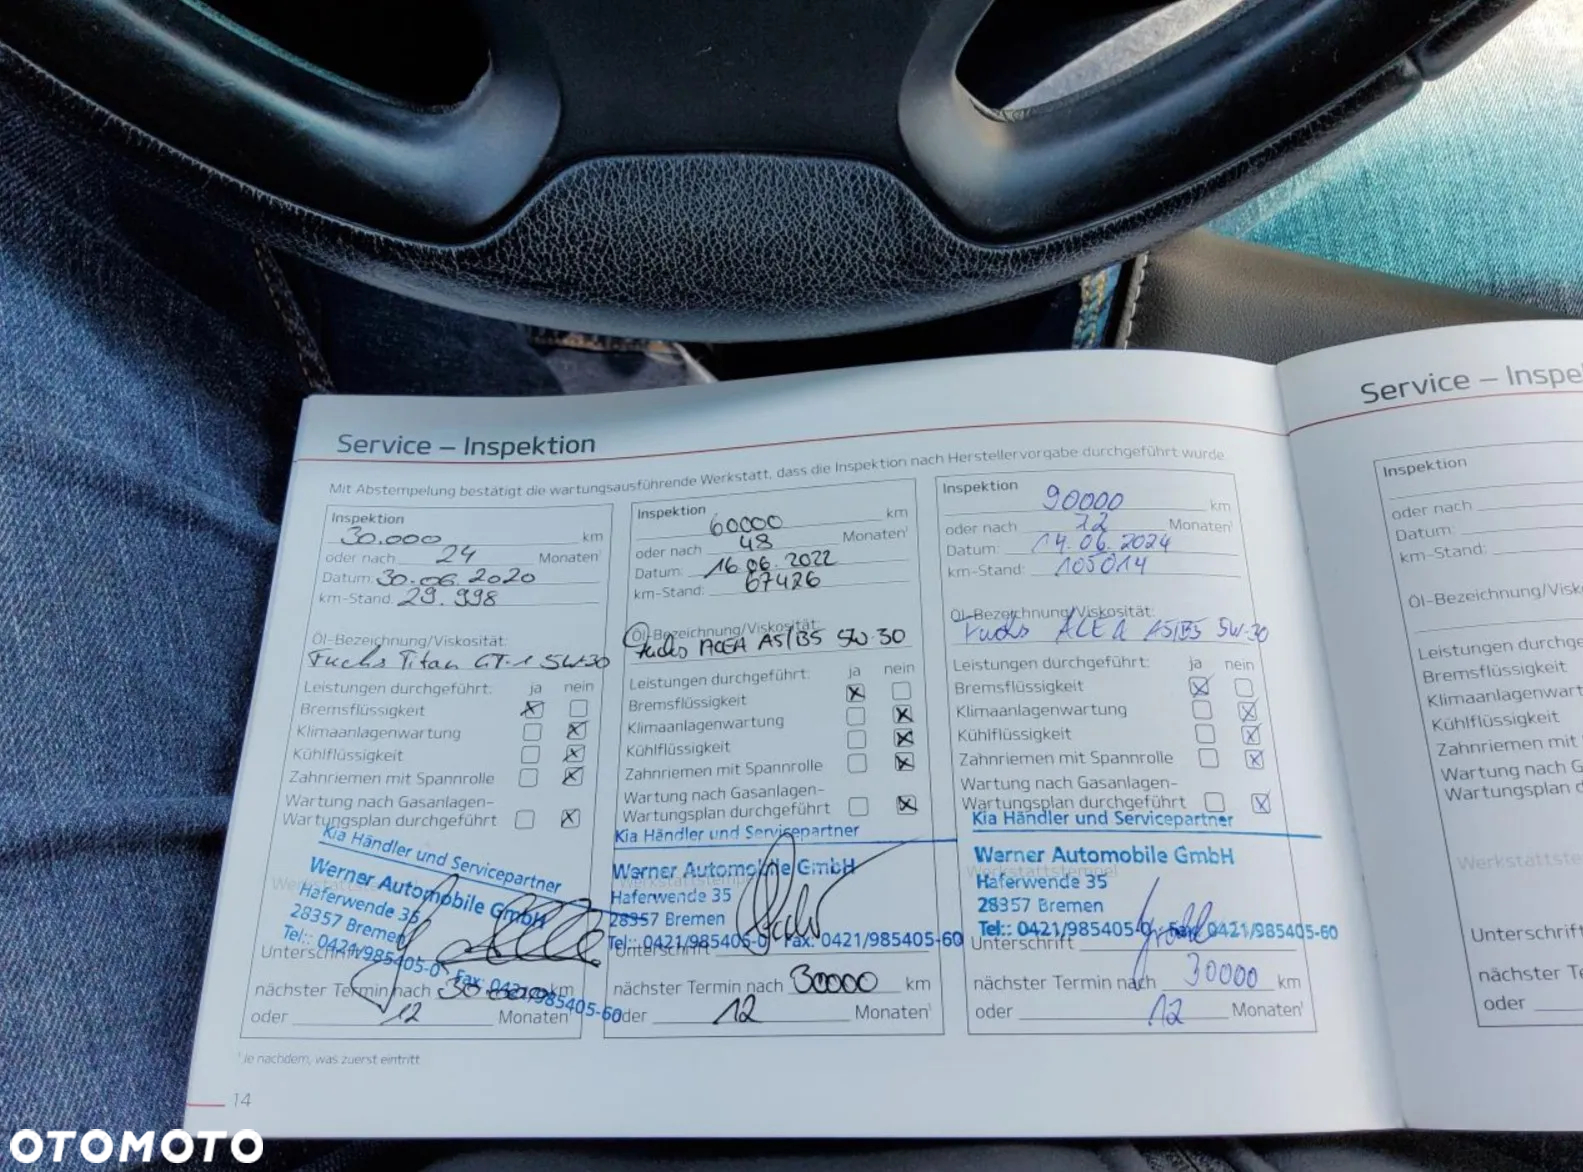 Service – Inspektion
Mit Abstempelung bestätigt die wartungsausführende Werkstatt, dass die Inspektion nach Herstellervorgabe durchgeführt wurde.
Inspektion
30.000 km
oder nach 24 Monaten¹
Datum: 30.06.2020
km-Stand: 29.998
Öl-Bezeichnung/Viskosität:
Fuchs Titan GT-1 5W-30
Leistungen durchgeführt: ja nein
Bremsflüssigkeit
Klimaanlagenwartung
Kühlflüssigkeit
Zahnriemen mit Spannrolle
Wartung nach Gasanlagen-
Wartungsplan durchgeführt
Kia Händler und Servicepartner
Werner Automobile GmbH
Haferwende 35
28357 Bremen
Tel.: 0421/985405-0 Fax: 0421/985405-60
Unterschrift
nächster Termin nach 30.000 km
oder 12 Monaten¹
Inspektion
60000 km
oder nach 48 Monaten¹
Datum: 16.06.2022
km-Stand: 67426
Öl-Bezeichnung/Viskosität:
Fuchs ACEA A5/B5 5W-30
Leistungen durchgeführt: ja nein
Bremsflüssigkeit
Klimaanlagenwartung
Kühlflüssigkeit
Zahnriemen mit Spannrolle
Wartung nach Gasanlagen-
Wartungsplan durchgeführt
Kia Händler und Servicepartner
Werner Automobile GmbH
Werkstattstempel
Haferwende 35
28357 Bremen
Tel.: 0421/985405-0 Fax: 0421/985405-60
Unterschrift
nächster Termin nach 30000 km
oder 12 Monaten¹
Inspektion
90000 km
oder nach 72 Monaten¹
Datum: 14.06.2024
km-Stand: 105014
Öl-Bezeichnung/Viskosität:
Fuchs ACEA A5/B5 5W-30
Leistungen durchgeführt: ja nein
Bremsflüssigkeit
Klimaanlagenwartung
Kühlflüssigkeit
Zahnriemen mit Spannrolle
Wartung nach Gasanlagen-
Wartungsplan durchgeführt
Kia Händler und Servicepartner
Werner Automobile GmbH
Werkstattstempel
Haferwende 35
28357 Bremen
Tel.: 0421/985405-0 Fax: 0421/985405-60
Unterschrift
nächster Termin nach 30000 km
oder 12 Monaten¹
¹ Je nachdem, was zuerst eintritt
14
Service – Inspe
Inspektion
oder nach
Datum:
km-Stand:
Öl-Bezeichnung/Visk
Leistungen durchge
Bremsflüssigkeit
Klimaanlagenwart
Kühlflüssigkeit
Zahnriemen mit
Wartung nach G
Wartungsplan d
Werkstattste
Unterschrift
nächster Te
oder
OTOMOTO